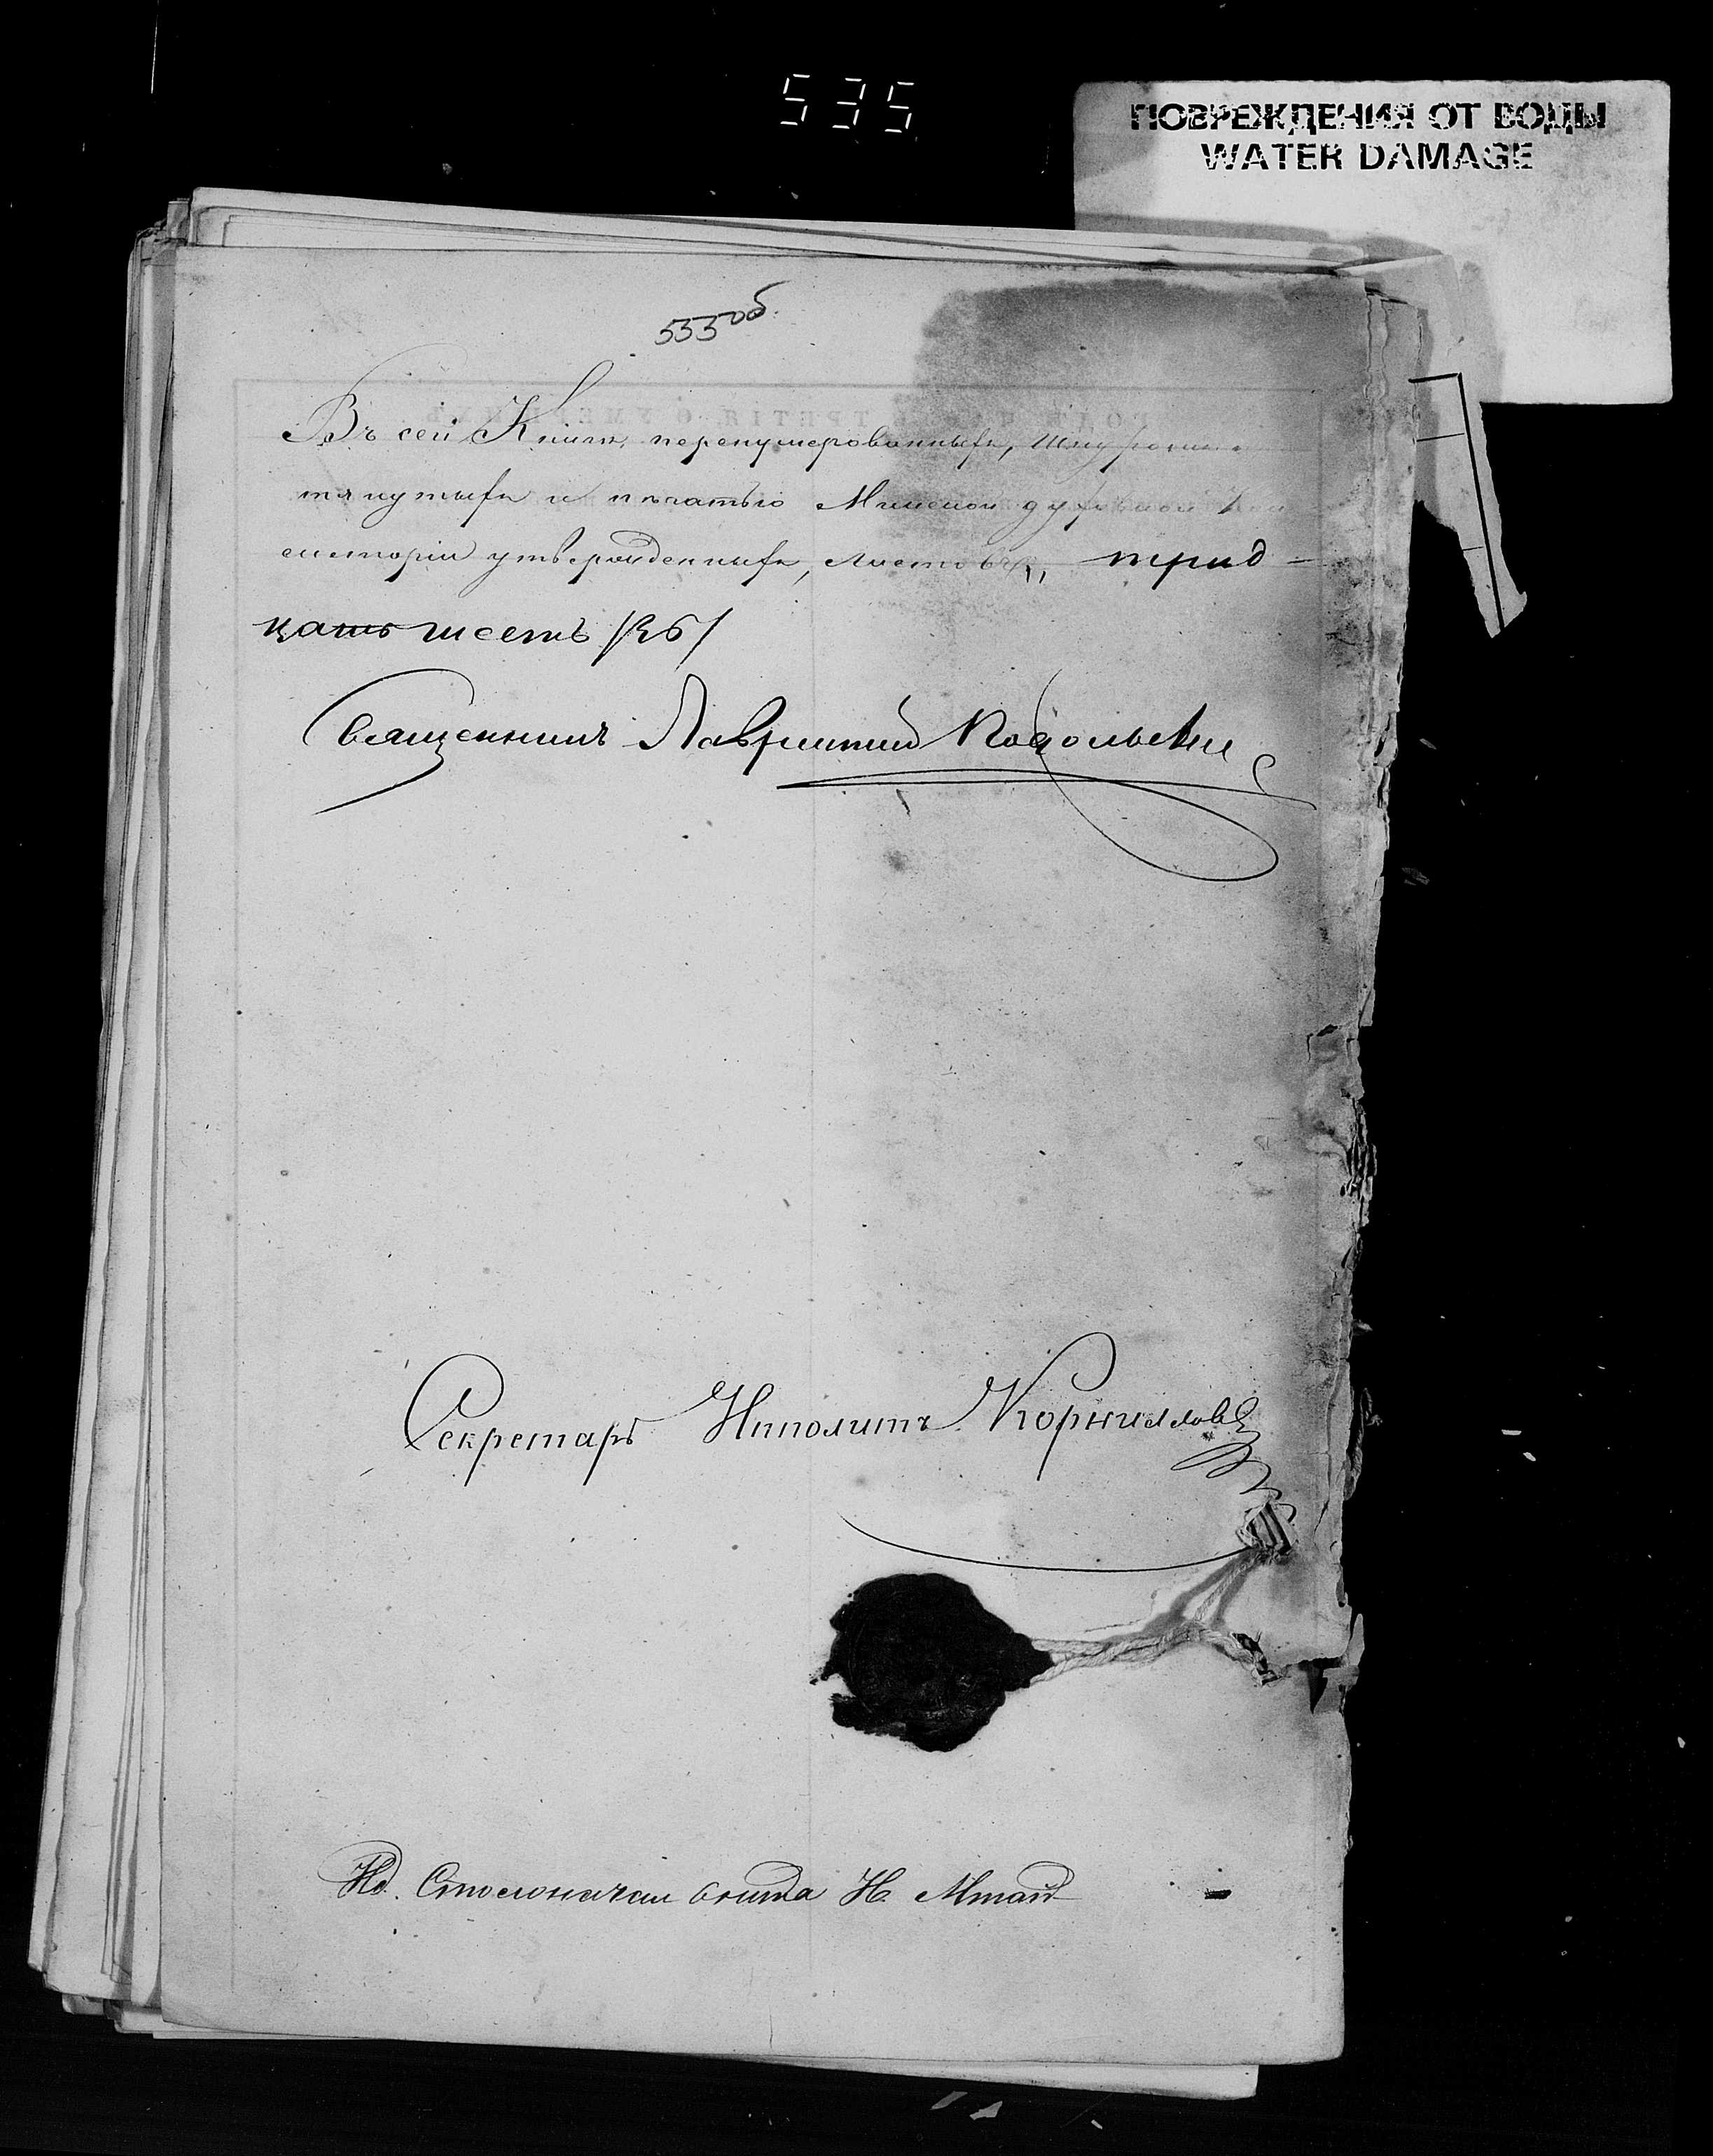 535
ПОВРЕЖДЕНИЯ ОТ ВОДЫ
WATER DAMAGE
533об.
Въ сей Книгѣ перенумерованныхъ, шнуромъ
тянутыхъ и печатью Минской духовной Кон
систоріи утвержденныхъ, листовъ, трид-
цать шесть /36/
Священникъ Лаврентій Подольскій
Секретарь Ипполитъ Корниловъ
Столоначальника Н.